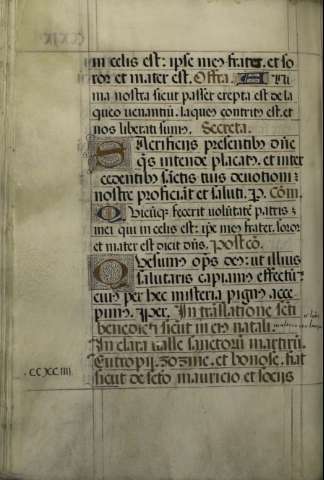 in celis est: ipse meꝰ frater. et so
ror et mater est. Offra. Ani
ma nostra sicut passer erepta est de la
queo uenantiū. laqueꝰ contritꝰ est. et
nos liberati sumꝰ. Secreta.
Sacrificijs presentibꝰ dn̄e
q̄s intende placatꝰ. et inter
cedentibꝰ sāctis tuis deuotioni
nostre proficiāt et saluti. P. Cōm.
Quicūq; fecerit uolūtatē patris
mei qui in celis est: ipe meꝰ frater. soror
et mater est dicit dn̄s. Postcō.
Quesumꝰ op̄s deꝰ: ut illius
salutaris capiamꝰ effectū:
cuiꝰ per hec misteria pignꝰ acce
pimꝰ. Per. In traslatione scti
benedicti sicut in eiꝰ natali.
In elata ualle sanctorū martirū.
Eutropij. zozime. et bonose. fiat
CCXCIIII
sicut de scto mauricio et socijs